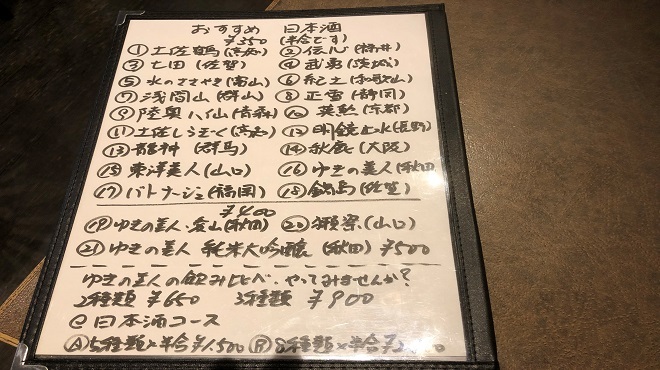 おすすめ 日本酒
¥350 (半合です)
①土佐鶴(高知) ②伝心(福井)
③七田(佐賀) ④武勇(茨城)
⑤水のささやき(富山) ⑥紀土(和歌山)
⑦浅間山(群馬) ⑧正雪(静岡)
⑨陸奥八仙(青森) ⑩英勲(京都)
⑪土佐しらぎく(高知) ⑫明鏡止水(長野)
⑬龍神(群馬) ⑭秋鹿(大阪)
⑮東洋美人(山口) ⑯ゆきの美人(秋田)
⑰パトナージュ(福岡) ⑱鍋島(佐賀)
¥400
⑲ゆきの美人 (秋田) ⑳獺祭(山口)
㉑ゆきの美人 純米大吟醸(秋田) ¥500
ゆきの美人の飲み比べ、やってみませんか?
2種類 ¥650 3種類 ¥900
◎日本酒コース
Ⓐ5種類×半合¥1,500 Ⓑ8種類×半合¥